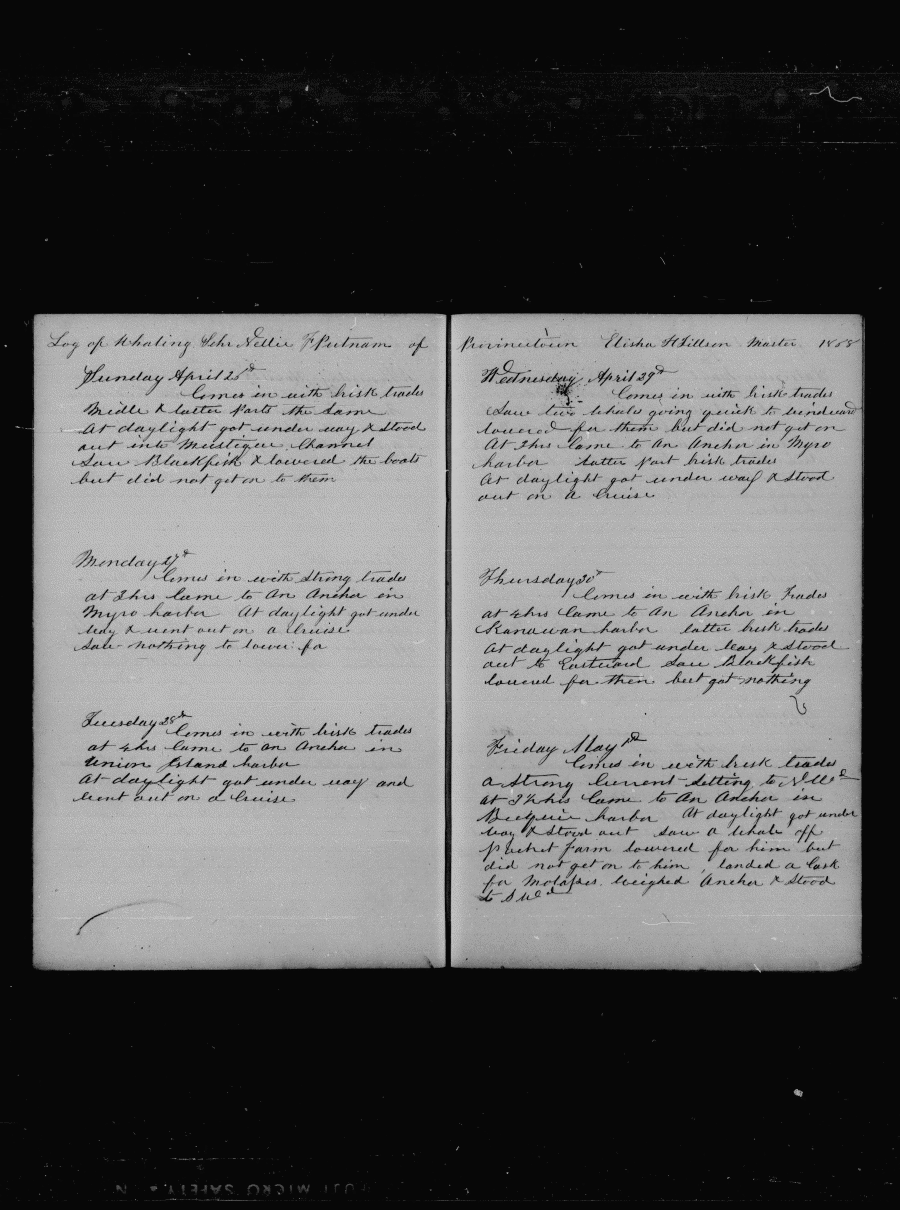 Log of Whaling Schr Nellie F Putnam of
Sunday April 26th
Comes in with brisk trades
Midle & latter Parts the Same
At daylight got under way & stood
out into Mustique Channel
Saw Blackfish & lowered the boats
but did not get on to them
Monday 27th
Comes in with Strong trades
at 2 hrs Came to An Anchor in
Myro harbor At daylight got under
way & went out on a Cruise
Saw nothing to lower for
Tuesday 28th
Comes in with brisk trades
at 4 hrs Came to an Anchor in
Union Island harbor
At daylight got under way and
went out on a Cruise
Provincetown Elisha H Tillson Master
Wednesday April 29th
Comes in with brisk trades
Saw two whales going quick to windward
lowered for them but did not get on
At 2 hrs Came to An Anchor in Myro
harbor latter Part brisk trades
At daylight got under way & stood
out on a Cruise
Thursday 30th
Comes in with brisk Trades
at 4 hrs Came to An Anchor in
Kanawan harbor latter brisk trades
At daylight got under way & stood
out to Eastward Saw Blackfish
lowered for them but got nothing
Friday May 1st
Comes in with brisk trades
a Strong Current Setting to N Wd
at Came to An Anchor in
Bequie harbor At daylight got under
way & stood out saw a whale off
Parket farm lowered for him but
did not get on to him, landed a Cask
for Molasses. Weighed Anchor & Stood
to S Wd
FUJI MICRO SAFETY